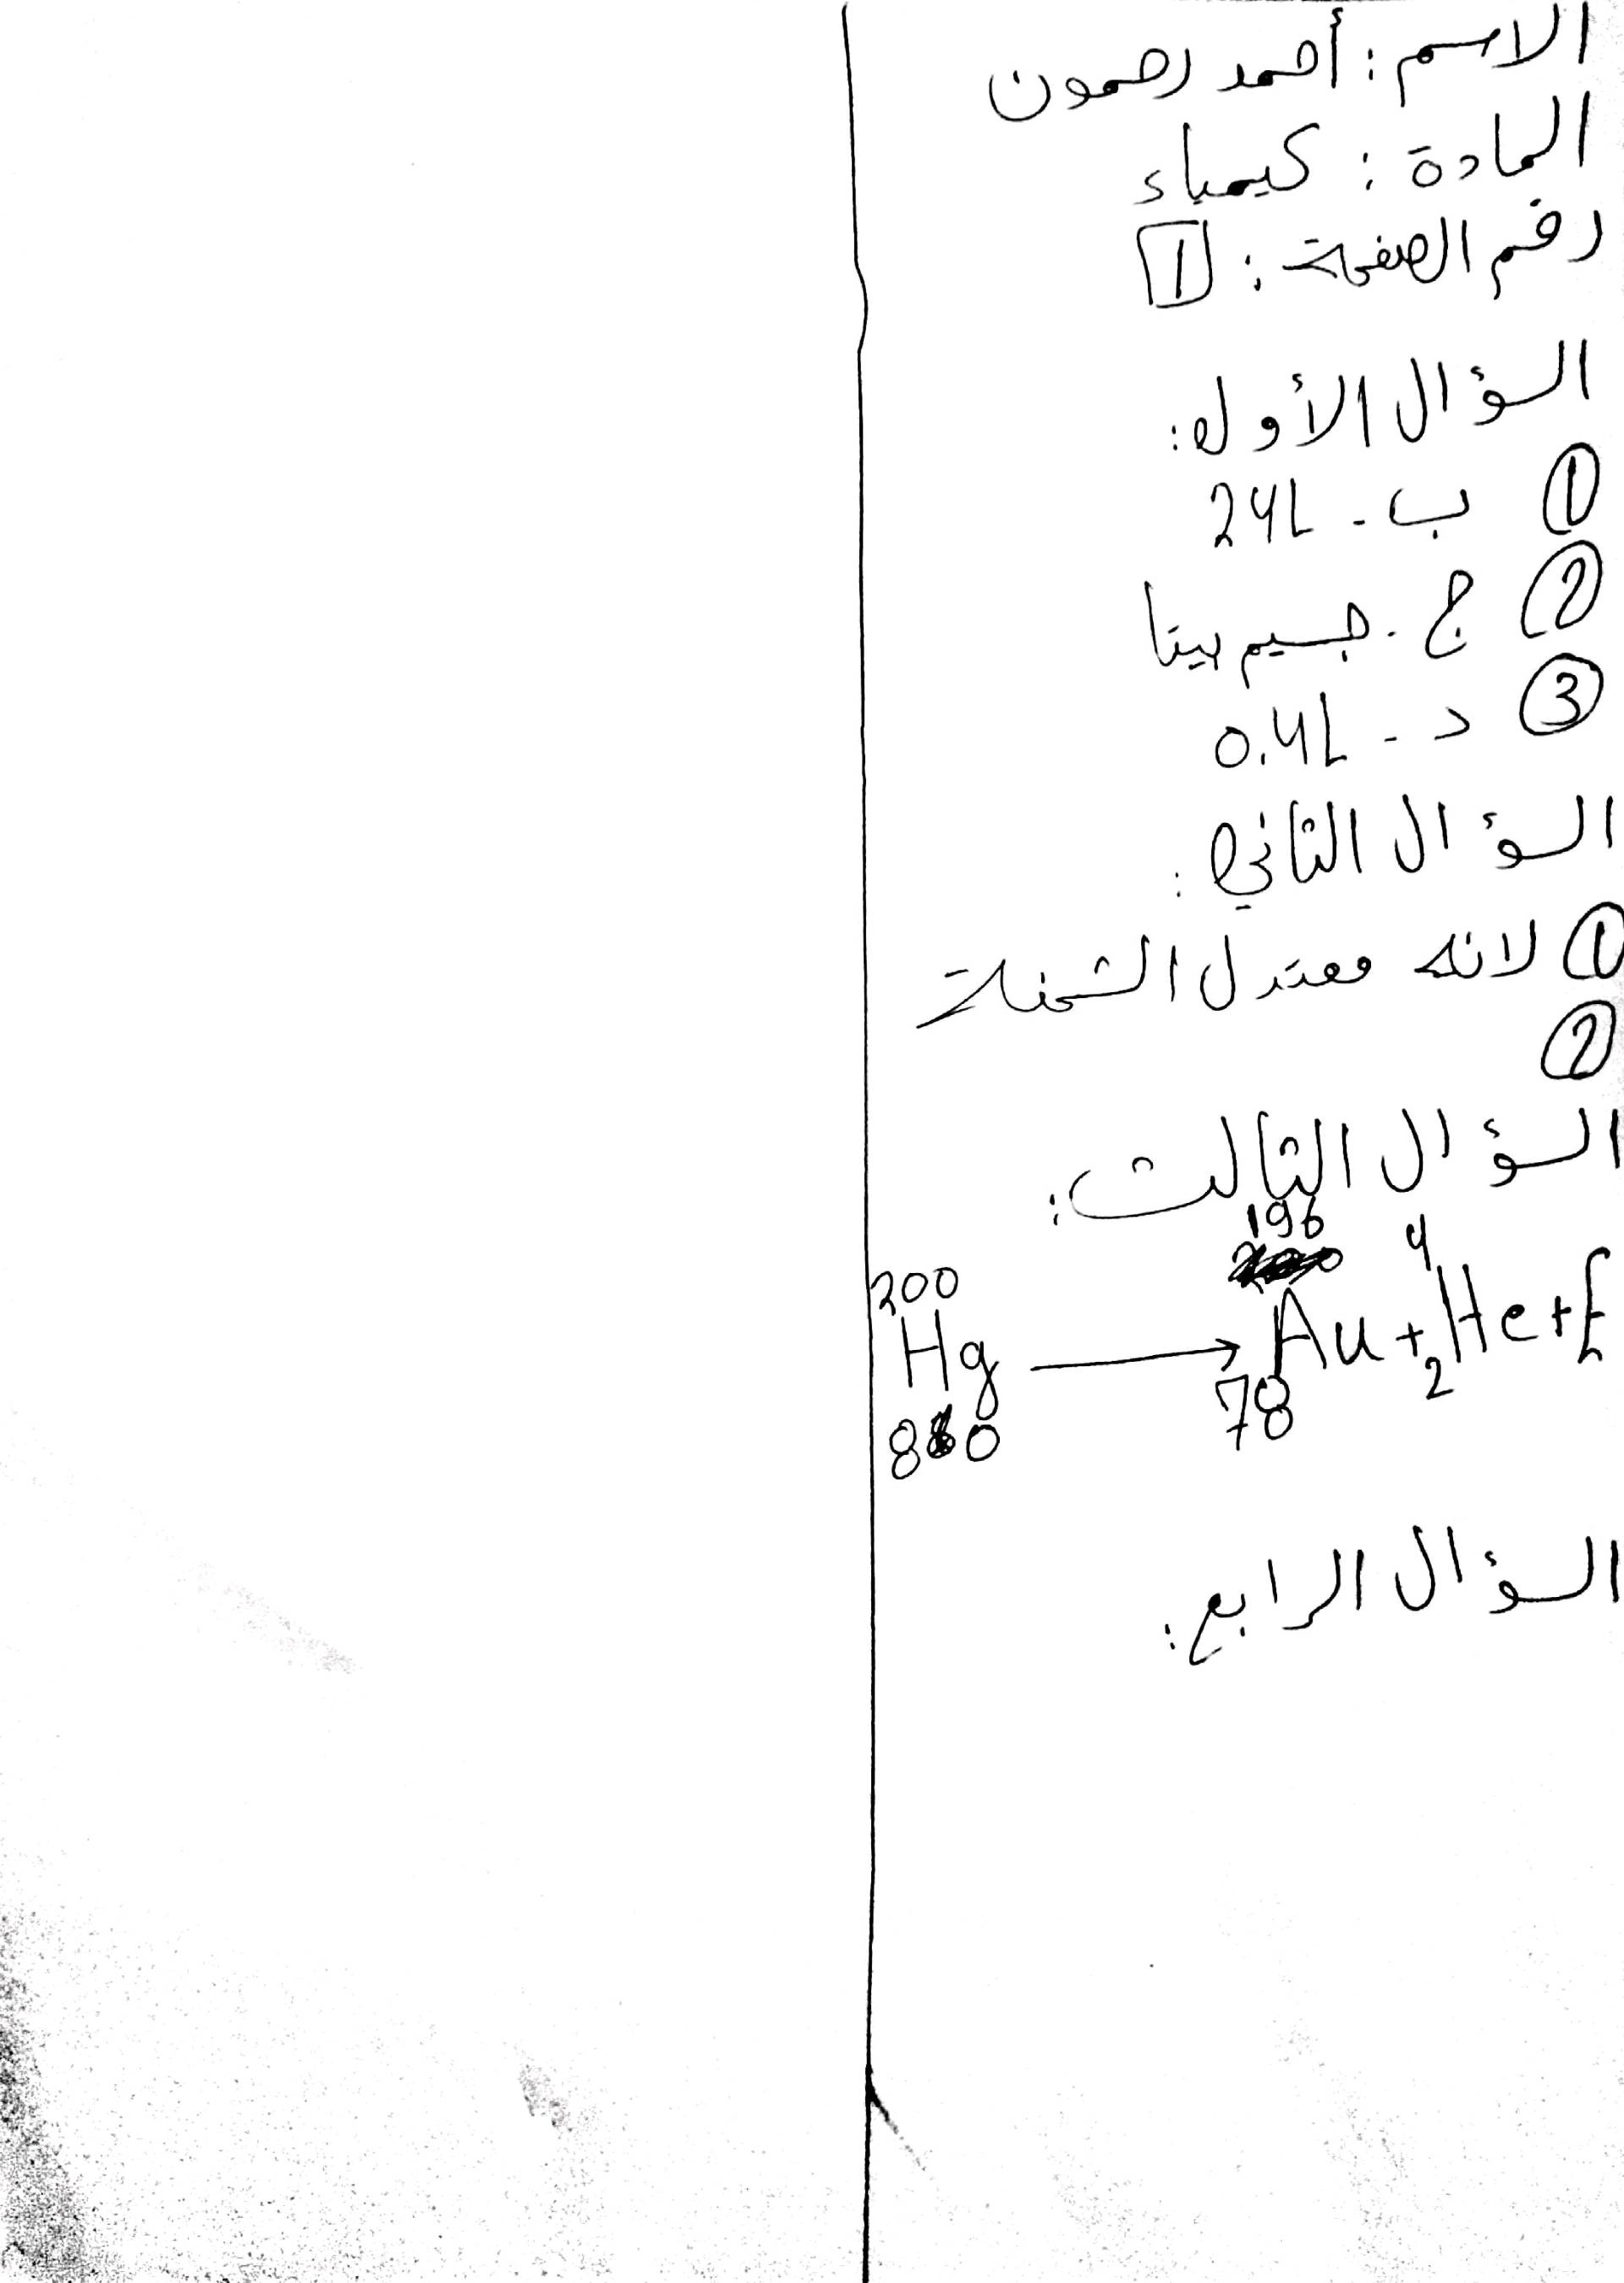 الاسم : أحمد رحمون
المادة : كيمياء
رقم الصفحة : 1
السؤال الأول :
1 ب - 24L
2 ج - جسيم بيتا
3 د - 0.4L
السؤال الثاني :
1 لانه معتدل الشحنة
2
السؤال الثالث :
200 196 4
Hg → Au + He + E
80 78 2
السؤال الرابع :